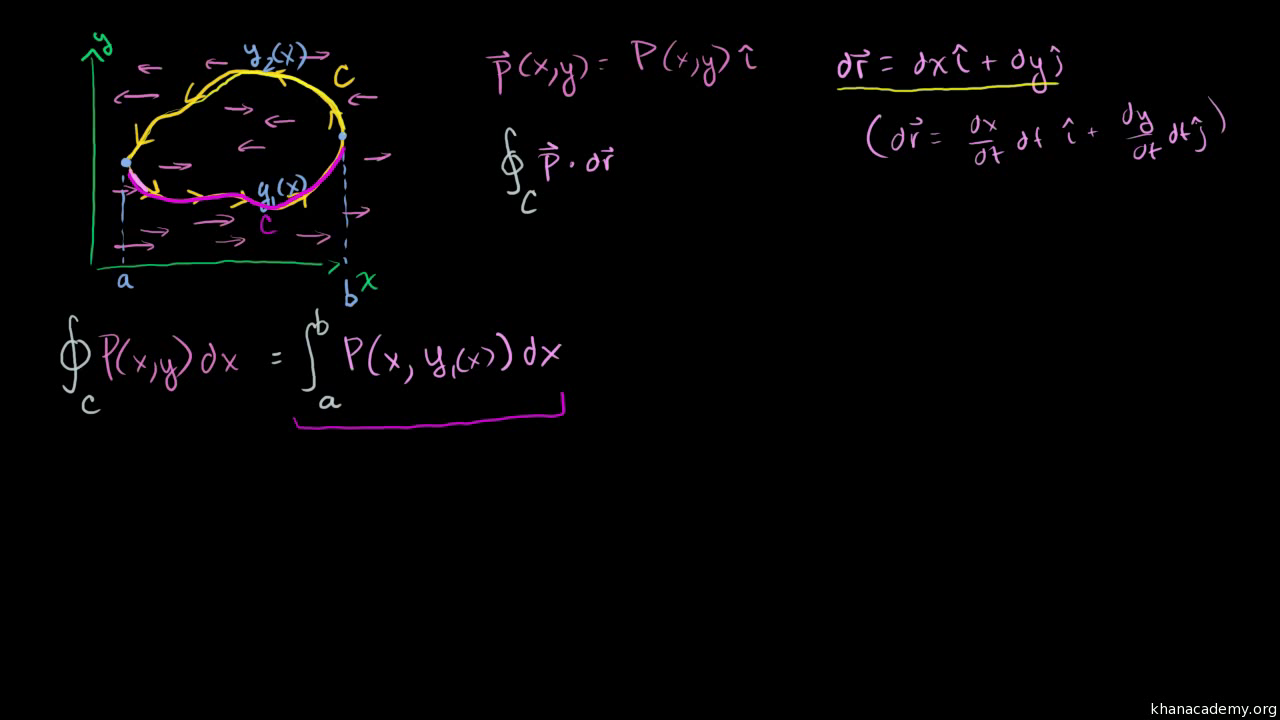 y
y₂(x)
C
y₁(x)
C
a
b
x
p⃗(x,y) = P(x,y) î
∮_C p⃗ · dr⃗
dr⃗ = dx î + dy ĵ
(dr⃗ = dx/dt dt î + dy/dt dt ĵ)
∮_C P(x,y) dx = ∫_a^b P(x, y₁(x)) dx
khanacademy.org